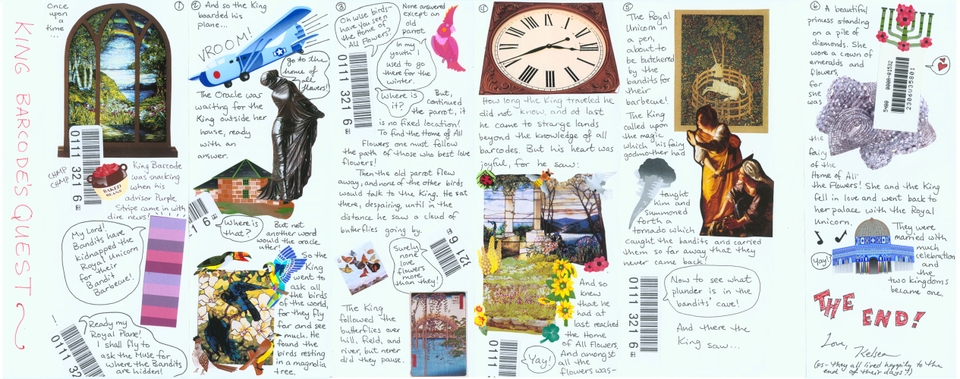 KING BARCODE'S QUEST!
①
Once
upon
a
time...
0111 321 6
CHOMP
CHOMP
BAKED
BEANS
King Barcode
was snacking
when his
advisor Purple
Stripe came in with
dire news!
My Lord!
Bandits have
kidnapped the
Royal Unicorn
for their
Barbecue!
Ready my
Royal Plane!
I shall fly to
ask the Muse for
where the Bandits
are hidden!
0111
②
And so the King
boarded his
plane...
VROOM!
go to the
home of
all
flowers!
The Oracle was
waiting for the
King outside her
house, ready
with an
answer.
Where is
that?
But not
another word
would the oracle
utter!
So the
King
went to
ask all
the birds
of the
world, for
they fly
far and see
so much. He
found the
birds resting
in a magnolia
tree.
③
Oh wise birds-
have you seen
the Home of
All Flowers?
0111 321 6
None answered
except an
old
parrot
In my
youth I
used to go
there for the
winter.
Where is
it?
But,
continued
the parrot, it
is no fixed location!
To find the Home of All
Flowers one must follow
the path of those who best love
flowers!
Then the old parrot flew
away, and none of the other birds
would talk to the King. He sat
there, despairing, until in the
distance he saw a cloud of
butterflies going by.
Surely
none
love
flowers
more than
they!
The King
followed the
butterflies over
hill, field, and
river, but never
did they pause.
④
How long the King traveled he
did not know, and at last
he came to strange lands
beyond the knowledge of all
barcodes. But his heart was
joyful, for he saw:
And so
he knew
that he
had at
last reached
the Home
of All Flowers.
And amongst
all the
flowers was-
Yay!
0111
⑤
The Royal
Unicorn in
a pen,
about to
be butchered
by the
bandits for
their
barbecue!
The King
called upon
the magic
which his fairy
godmother had
taught
him and
summoned
forth a
tornado which
caught the bandits and carried
them so far away that they
never came back.
0111 321 6
Now to see what
plunder is in the
bandits' cave!
And there the
King saw...
⑥
A beautiful
princess standing
on a pile of
diamonds. She
wore a crown of
emeralds and
flowers,
for she
was
the
fairy
of the
Home of All
the Flowers! She and the King
fell in love and went back to
her palace with the Royal
Unicorn.
Yay!
They were
married with
much
celebration
and the
two kingdoms
became one.
THE END!
Love,
Kelsea
(ps- they all lived happily to the
end of their days!)